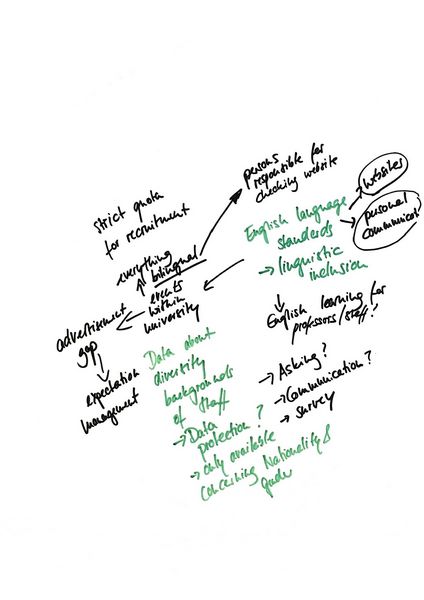 persons
responsible for
checking website
websites
personal
communicat
strict quota
for recruitment
English language
standards
→ linguistic
inclusion
everything
bilingual
events
within
university
advertisement
gap
expectation
management
English learning for
professors/staff?
→ Asking?
→ Communication?
→ survey
Data about
diversity
backgrounds
of staff
→ Data
protection?
→ only available
concerning Nationality &
gender